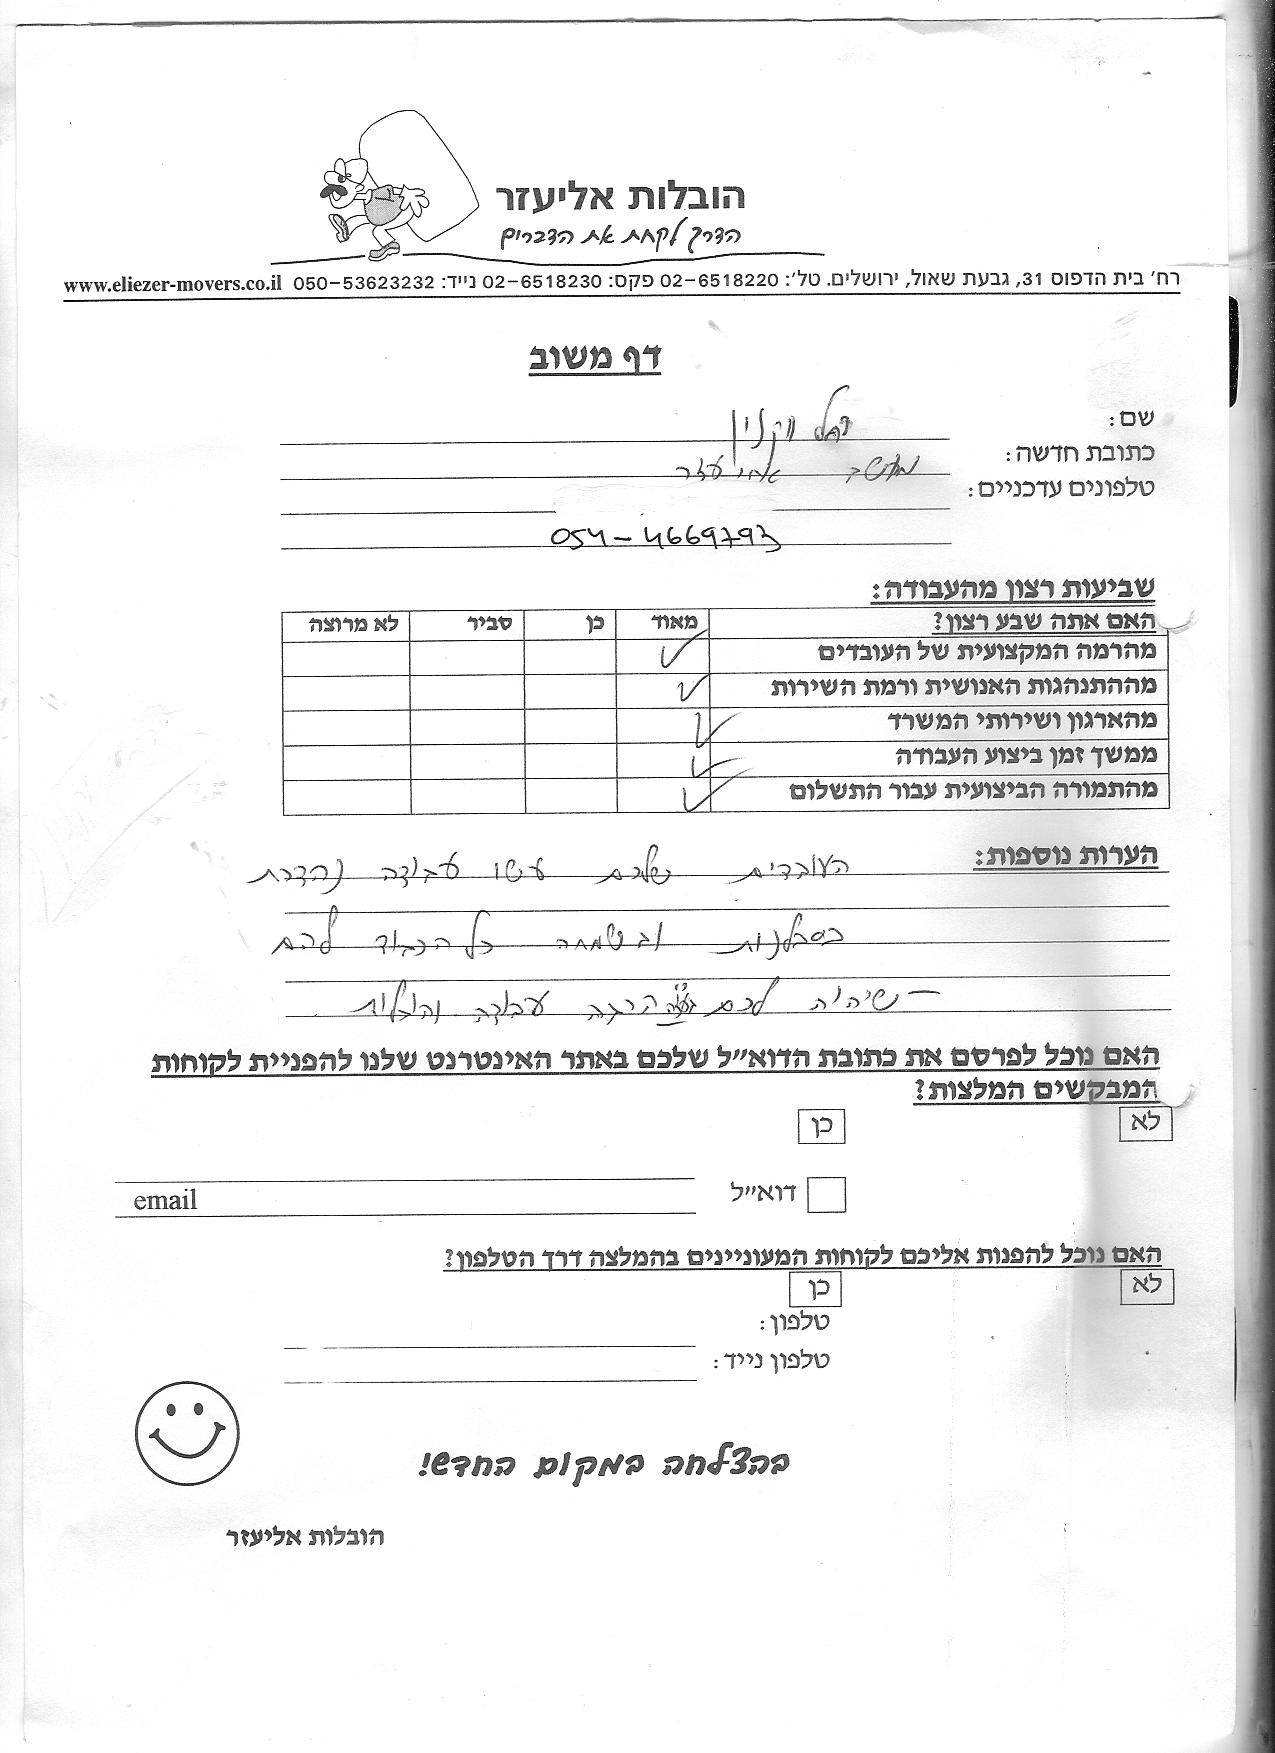 הובלות אליעזר
הדרך לקחת את הדברים
רח׳ בית הדפוס 31, גבעת שאול, ירושלים. טל׳: 02-6518220 פקס: 02-6518230 נייד: 050-53623232 www.eliezer-movers.co.il
דף משוב
שם: רחל ווקנין
כתובת חדשה: מושב אחיעזר
טלפונים עדכניים:
054-4669793
שביעות רצון מהעבודה:
האם אתה שבע רצון? מאוד כן סביר לא מרוצה
מהרמה המקצועית של העובדים ✓
מההתנהגות האנושית ורמת השירות ✓
מהארגון ושירותי המשרד ✓
ממשך זמן ביצוע העבודה ✓
מהתמורה הביצועית עבור התשלום ✓
הערות נוספות: העובדים שלכם עשו עבודה נהדרת
בסבלנות ובשמחה כל הכבוד להם
– שיהיה לכם הרבה עבודה והובלות
האם נוכל לפרסם את כתובת הדוא״ל שלכם באתר האינטרנט שלנו להפניית לקוחות
המבקשים המלצות?
לא כן
דוא״ל email
האם נוכל להפנות אליכם לקוחות המעוניינים בהמלצה דרך הטלפון?
לא כן
טלפון:
טלפון נייד:
בהצלחה במקום החדש!
הובלות אליעזר